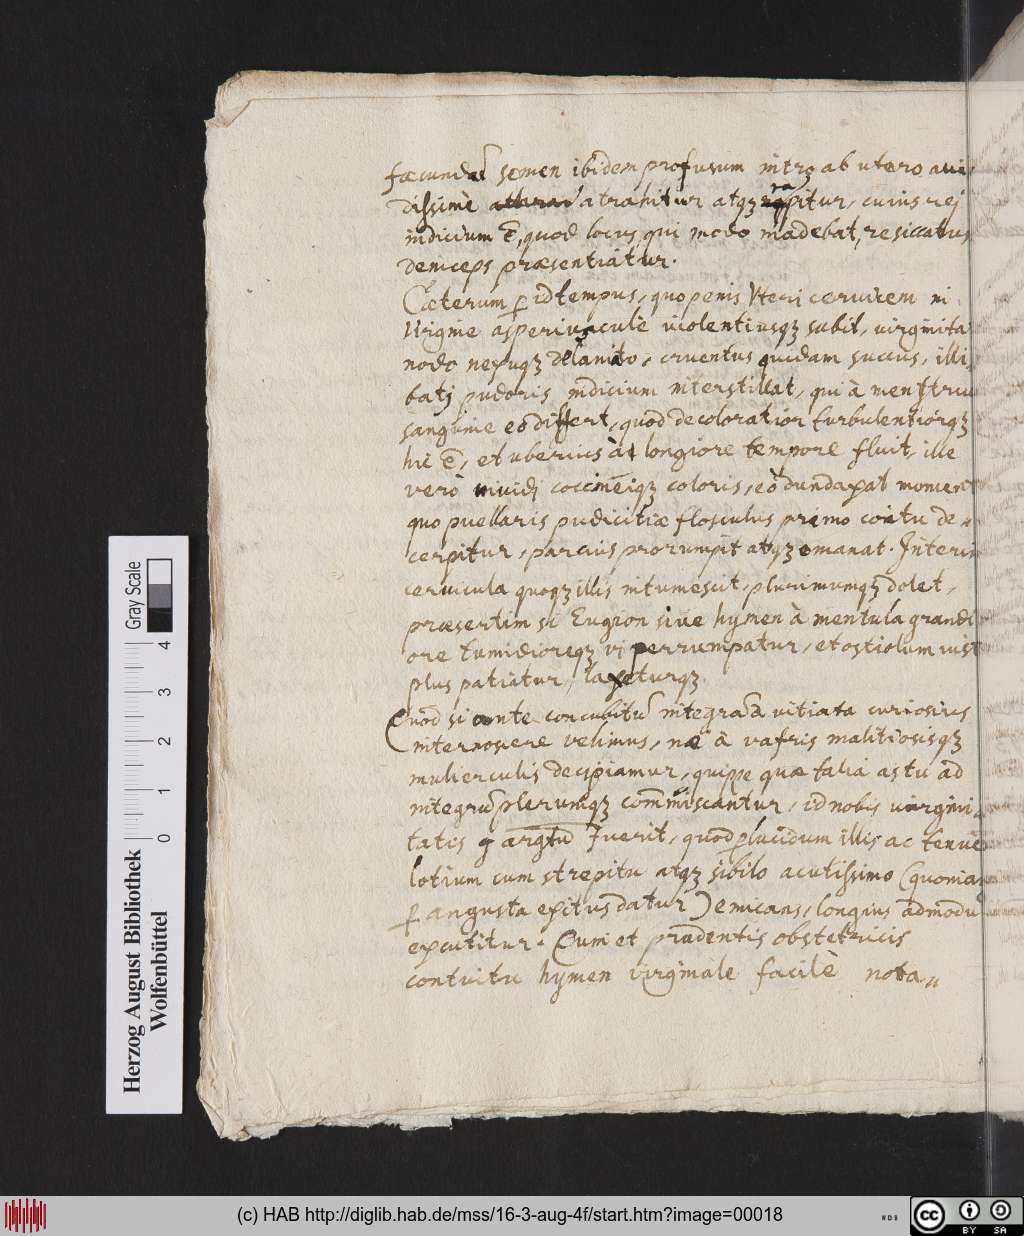 fœcundũ semen ibidem profusum intro ab utero avi-
dissimè atrahitur atqꝫ rapitur, cuius rej
indicium ē, quod locus, qui modo madebat, resiccatus
deinceps præsentiatur.
Cæterum ꝑ id tempus, quo penis Uteri cervicem in
Virgine asperiuscule violentiusqꝫ subit, virginita
nodo nexuqꝫ delaniato, cruentus quidam succus, illi,
batj pudoris indicium interstillat, qui à menstruo
sanguine eo differt, quod decoloratior turbulentiorqꝫ
hic ē, et uberius ac longiore tempore fluit, ille
verò vividj coccineiqꝫ coloris, eo dundaxat momen
quo puellaris pudicitiæ flosculus primo coitu de-
cerpitur, parcius prorumpit atqꝫ emanat. Interim
cervicula quoqꝫ illis intumescit, plurimumqꝫ dolet,
præsertim si Eugion sive hymen à mentula grandi
ore tumidioreqꝫ vi perrumpatur, et ostiolum iust
plus patiatur, laxeturqꝫ.
Quod si ante concubitũ integra à vitiata curiosius
internoscere velimus, ne à vafris malitiosisqꝫ
mulierculis decipiamur, quippe quæ talia astu ad
integrũ plerumqꝫ commiscantur, id nobis virgini,
tatis argtũ fuerit, quod ꝑlucidum illis ac tenue
lotium cum strepitu atqꝫ sibilo acutissimo (quonia
ꝑ angusta exitus datur) emicans, longius admodũ
excutitur. Cum et prudentis obstetricis
contuitu hymen virginale facilè nota-
Herzog August Bibliothek
Wolfenbüttel
0 1 2 3 4
Gray Scale
(c) HAB http://diglib.hab.de/mss/16-3-aug-4f/start.htm?image=00018
WDB
cc BY SA